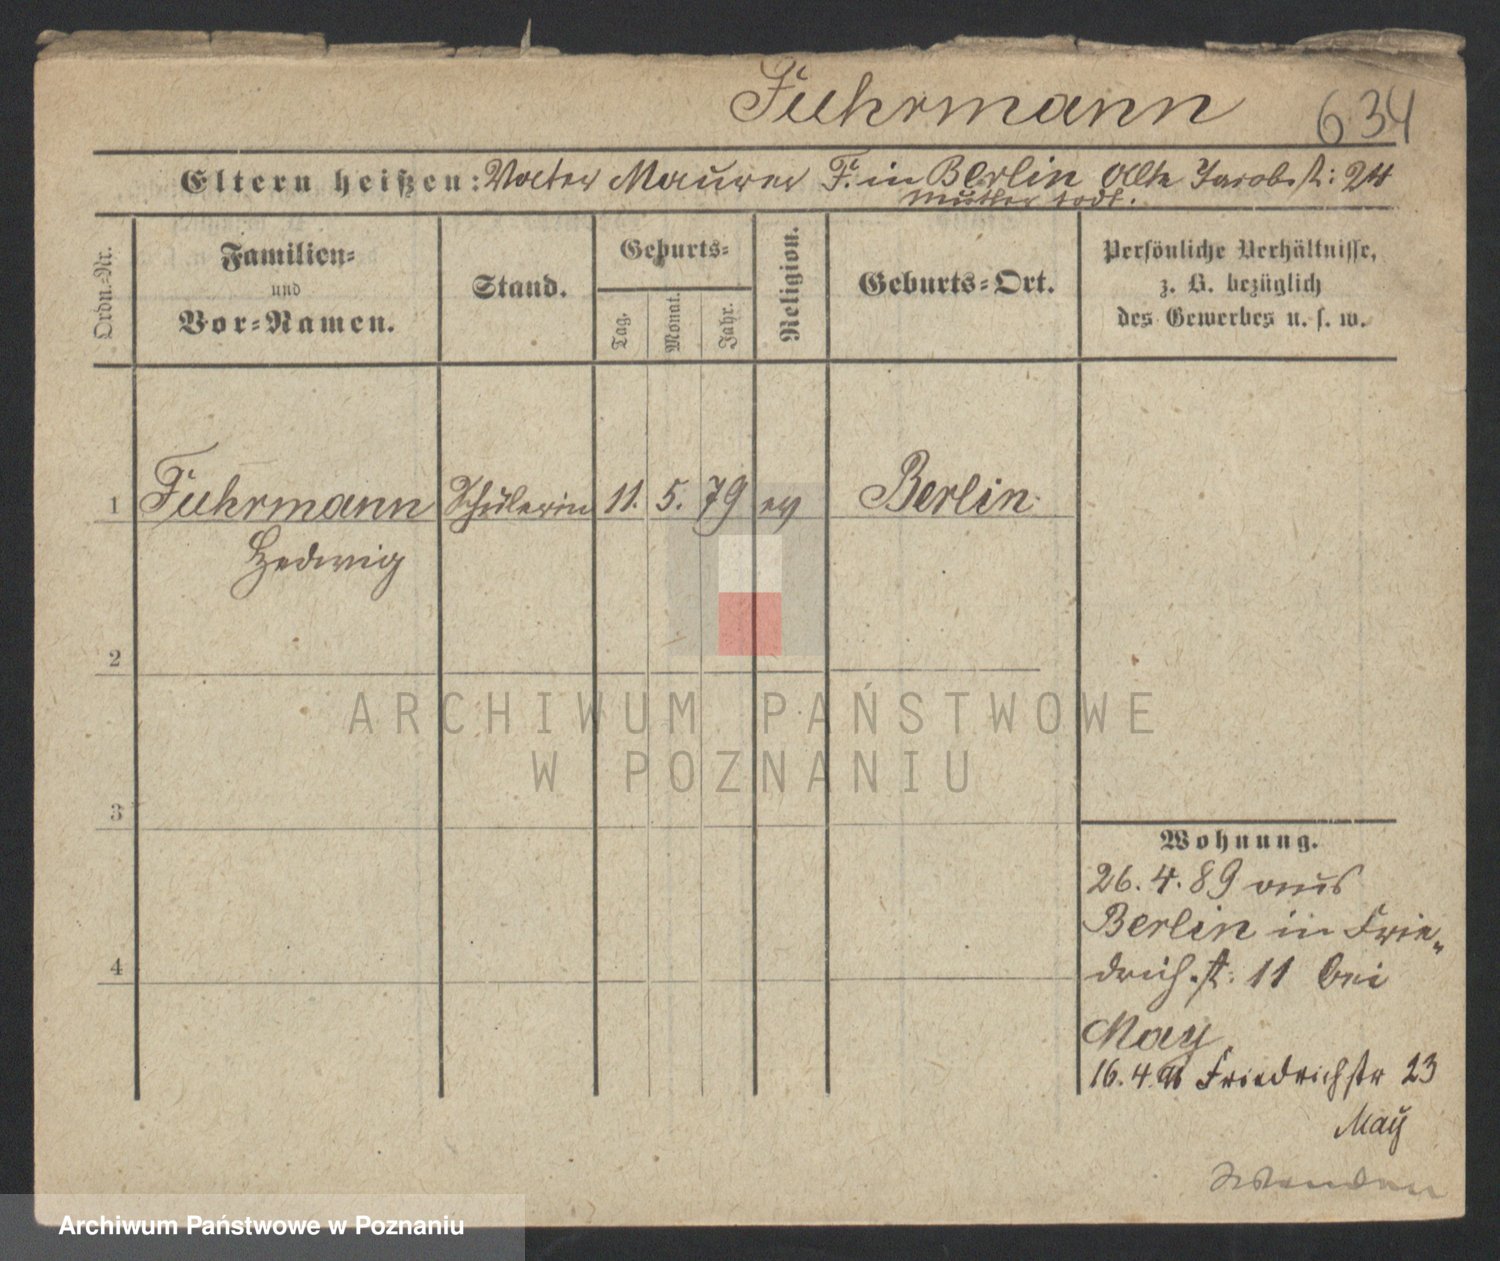 Fuhrmann
634
Eltern heißen: Vater Maurer F. in Berlin Alte Jacobst: 24
Mutter todt.
Ordn.-Nr.
Familien-
und
Vor-Namen.
Stand.
Geburts-
Tag.
Monat.
Jahr.
Religion.
Geburts-Ort.
Persönliche Verhältnisse,
z. B. bezüglich
des Gewerbes u. s. w.
1 Fuhrmann Schülerin 11. 5. 79 ev Berlin.
Hedwig
2
3
4
Wohnung.
26. 4. 89 aus
Berlin in Frie-
drich.st: 11 bei
May
16. 4. Friedrichstr 23
May
Wenden
ARCHIWUM PAŃSTWOWE
W POZNANIU
Archiwum Państwowe w Poznaniu